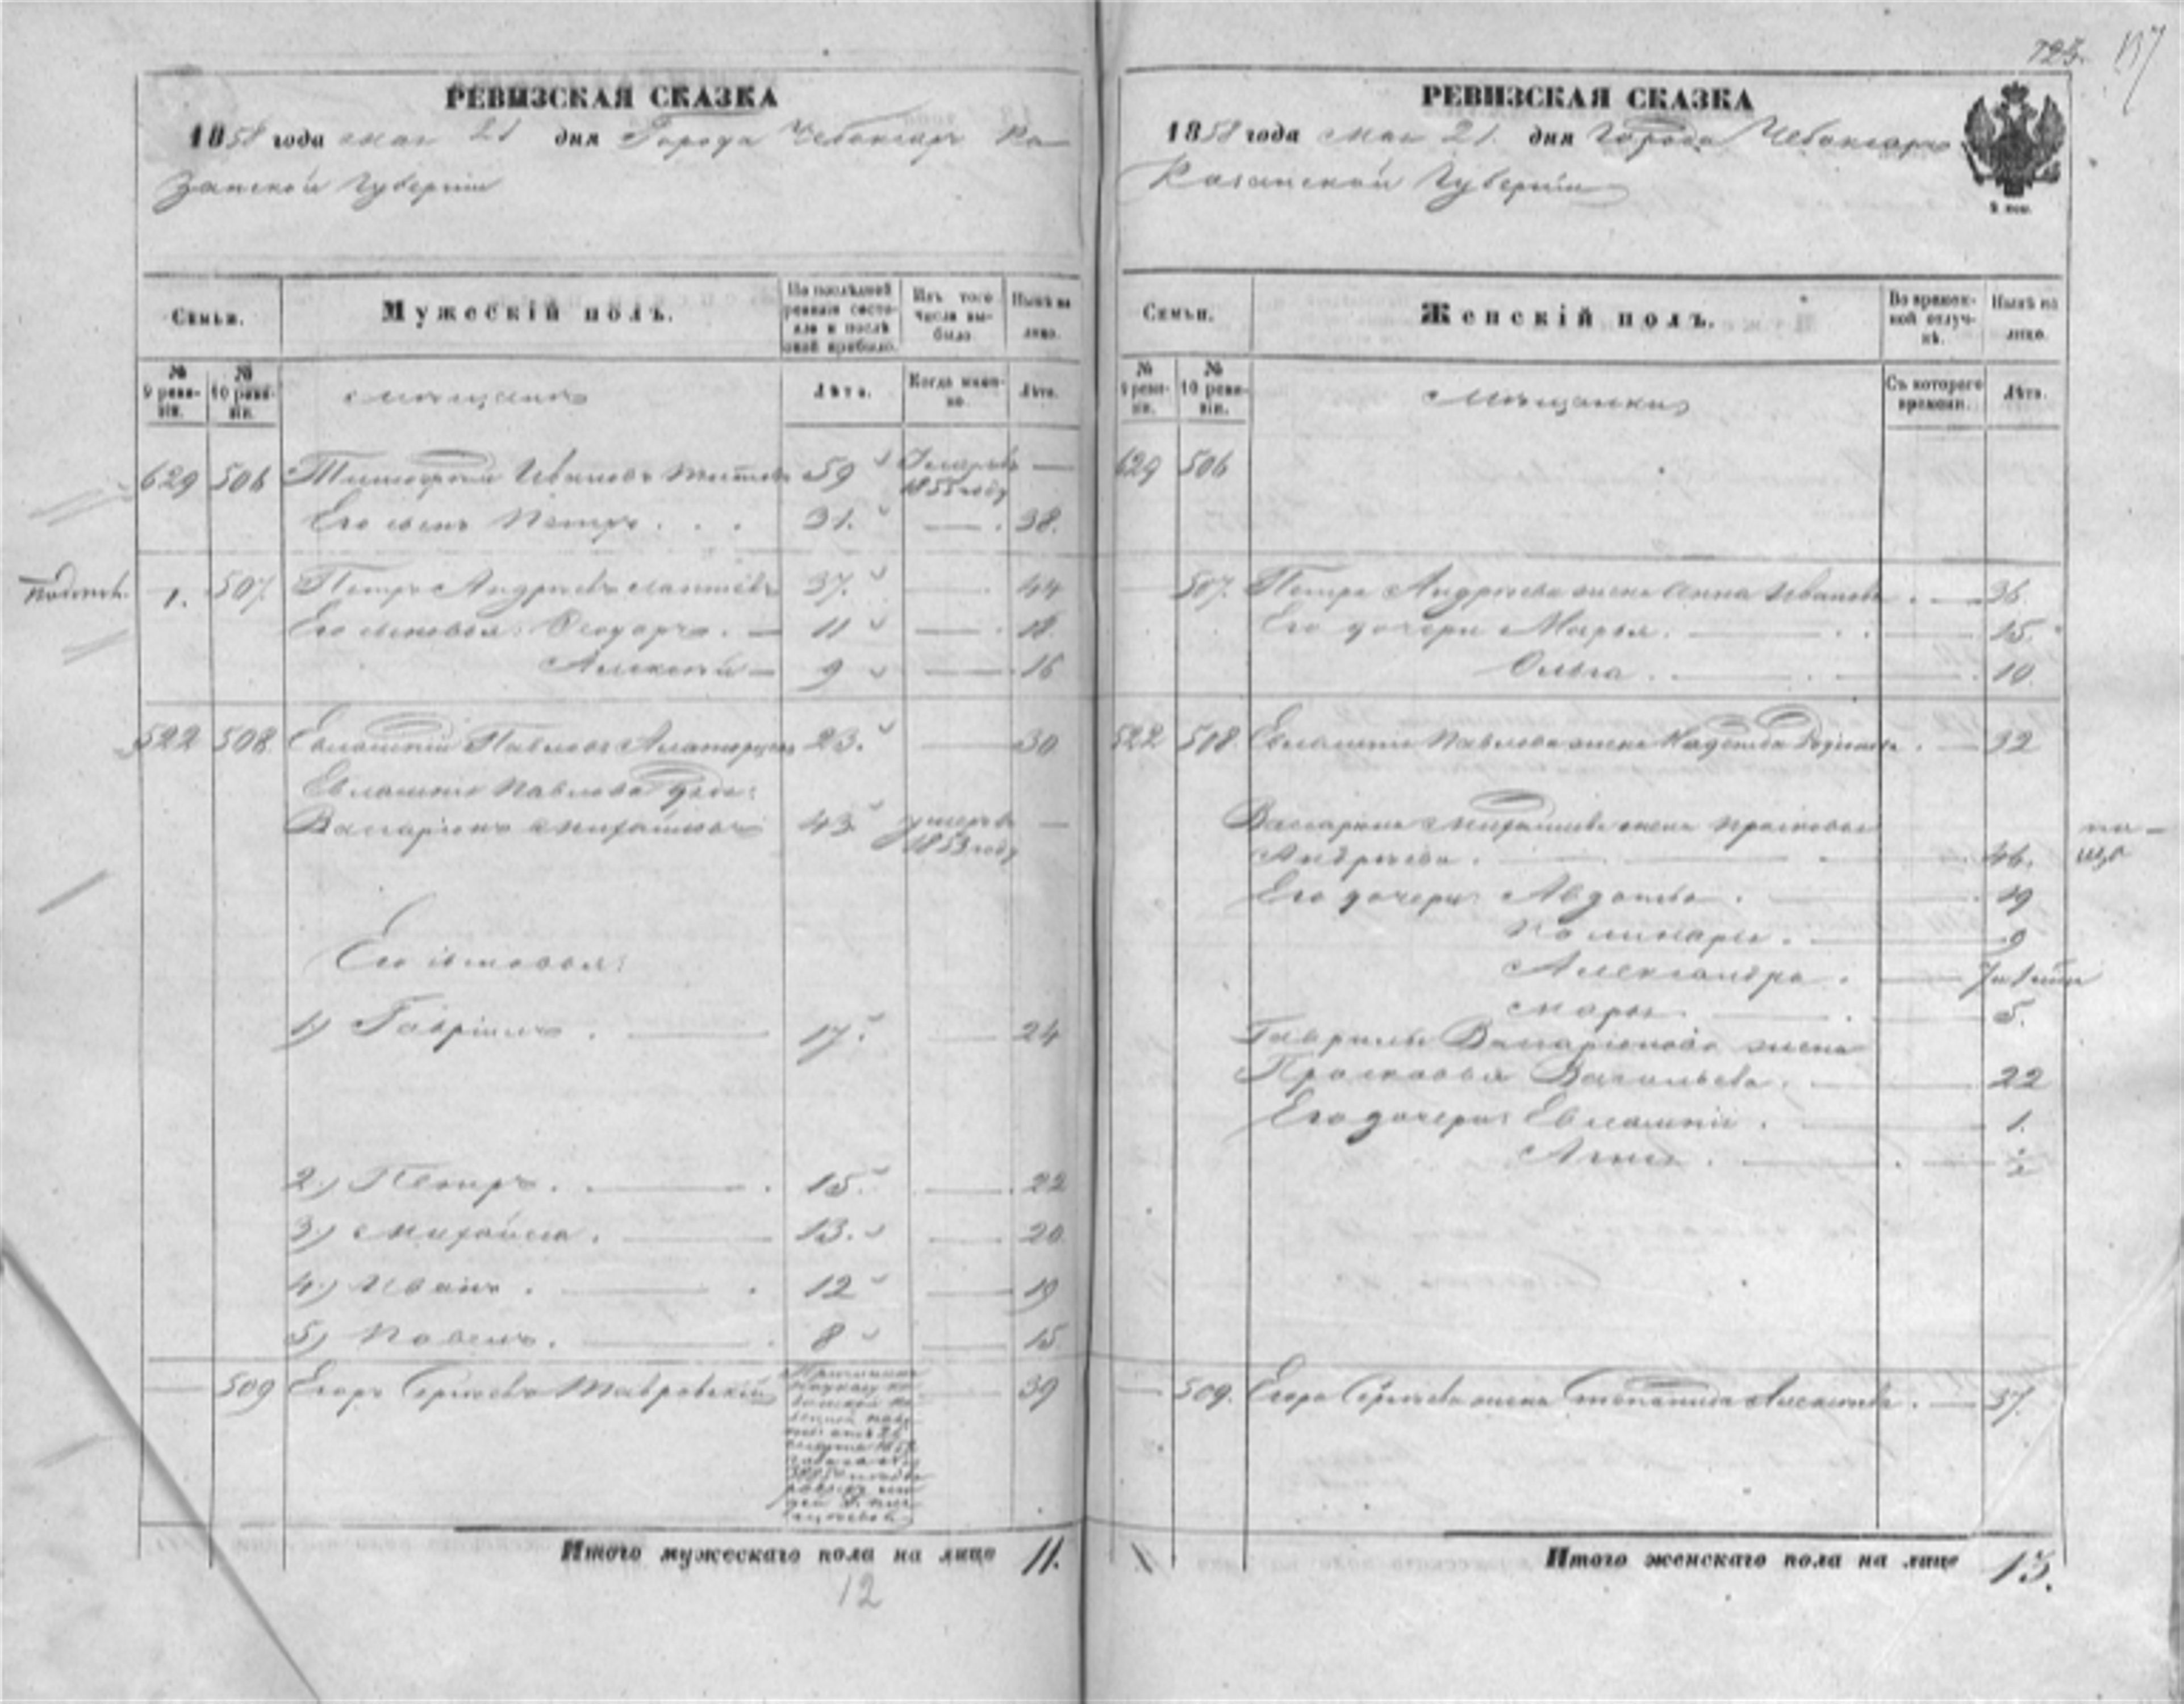 123. 157
РЕВИЗСКАЯ СКАЗКА
1858 года мая 21 дня Города Чебоксаръ Ка-
занской Губерніи
Семьи.
Мужескій полъ.
По послѣдней ревизіи состояло и послѣ оной прибыло.
Изъ того числа выбыло
Нынѣ на лицо.
№ 9 ревизіи.
№ 10 ревизіи.
мѣщане
Лѣта.
Когда именно.
Лѣта.
629 506 Тимофей Ивановъ 59 Умеръ въ 1855 году —
Его сынъ Петръ . . . 31. — 38.
1. 507. Петръ Андреевъ 37. — 44
Его сыновья: Ѳеодоръ. — 11 — 18.
Алексѣй — 9 — 16
522 508 Евлампій Павловъ 23. — 30
Евлампія Павлова дядя:
Виссаріонъ Михайловъ 43 умеръ въ 1853 году —
Его сыновья:
1) Гавріилъ . — 17. — 24
2.) Петръ . — 15. — 22
3.) Михайла . — 13. — 20
4.) Иванъ . — 12 — 19
5) Павелъ . — 8 — 15
— 509 Егоръ Сергѣевъ Тавровскій — 39
Итого мужескаго пола на лицо 11.
12
РЕВИЗСКАЯ СКАЗКА
1858 года мая 21. дня Города Чебоксаръ
Казанской Губерніи
Семьи.
Женскій полъ.
Во временной отлучкѣ.
Нынѣ на лицо.
№ 9 ревизіи.
№ 10 ревизіи.
Мѣщанки
Съ котораго времени.
Лѣта.
629 506
— 507. Петра Андреева жена Анна Иванова . — 36.
Его дочери Марья . — 15.
Ольга . — 10.
522 508. Евлампія Павлова жена Надежда . — 32
Виссаріона Михайлова жена Прасковья
Андреева . — 46.
Его дочери: Авдотья . — 19
— 9
Александра . — 7
Марья — 5.
Гаврилы Виссаріонова жена
Прасковья Васильева . — 22
Его дочери: Евлампія . — 1.
Анна . — ½
— 509. Егора Сергѣева жена Степанида Алексѣева . — 37.
Итого женскаго пола на лицо 13.